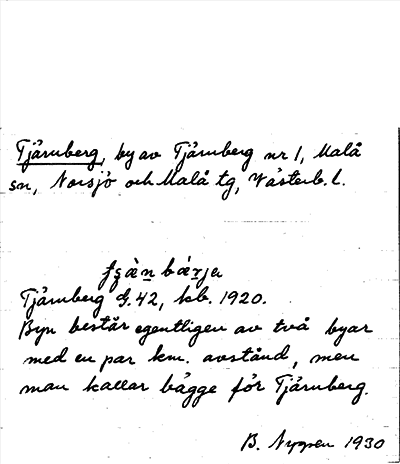 Tjärnberg, by av Tjärnberg nr 1, Malå
sn, Norsjö och Malå tg, Västerb. l.
Tjärnberg G. 42, kb. 1920.
Byn består egentligen av två byar
med en par km. avstånd, men
man kallar bägge för Tjärnberg.
B. Nygren 1930